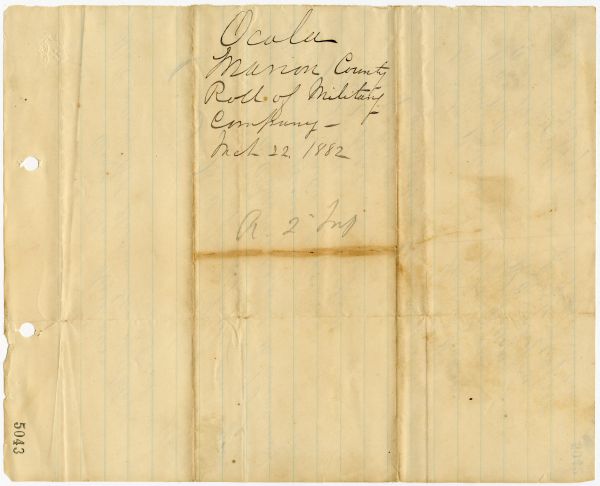 Ocala
Marion County
Roll of Military
Company -
Mch 22. 1882
R. 2
5043